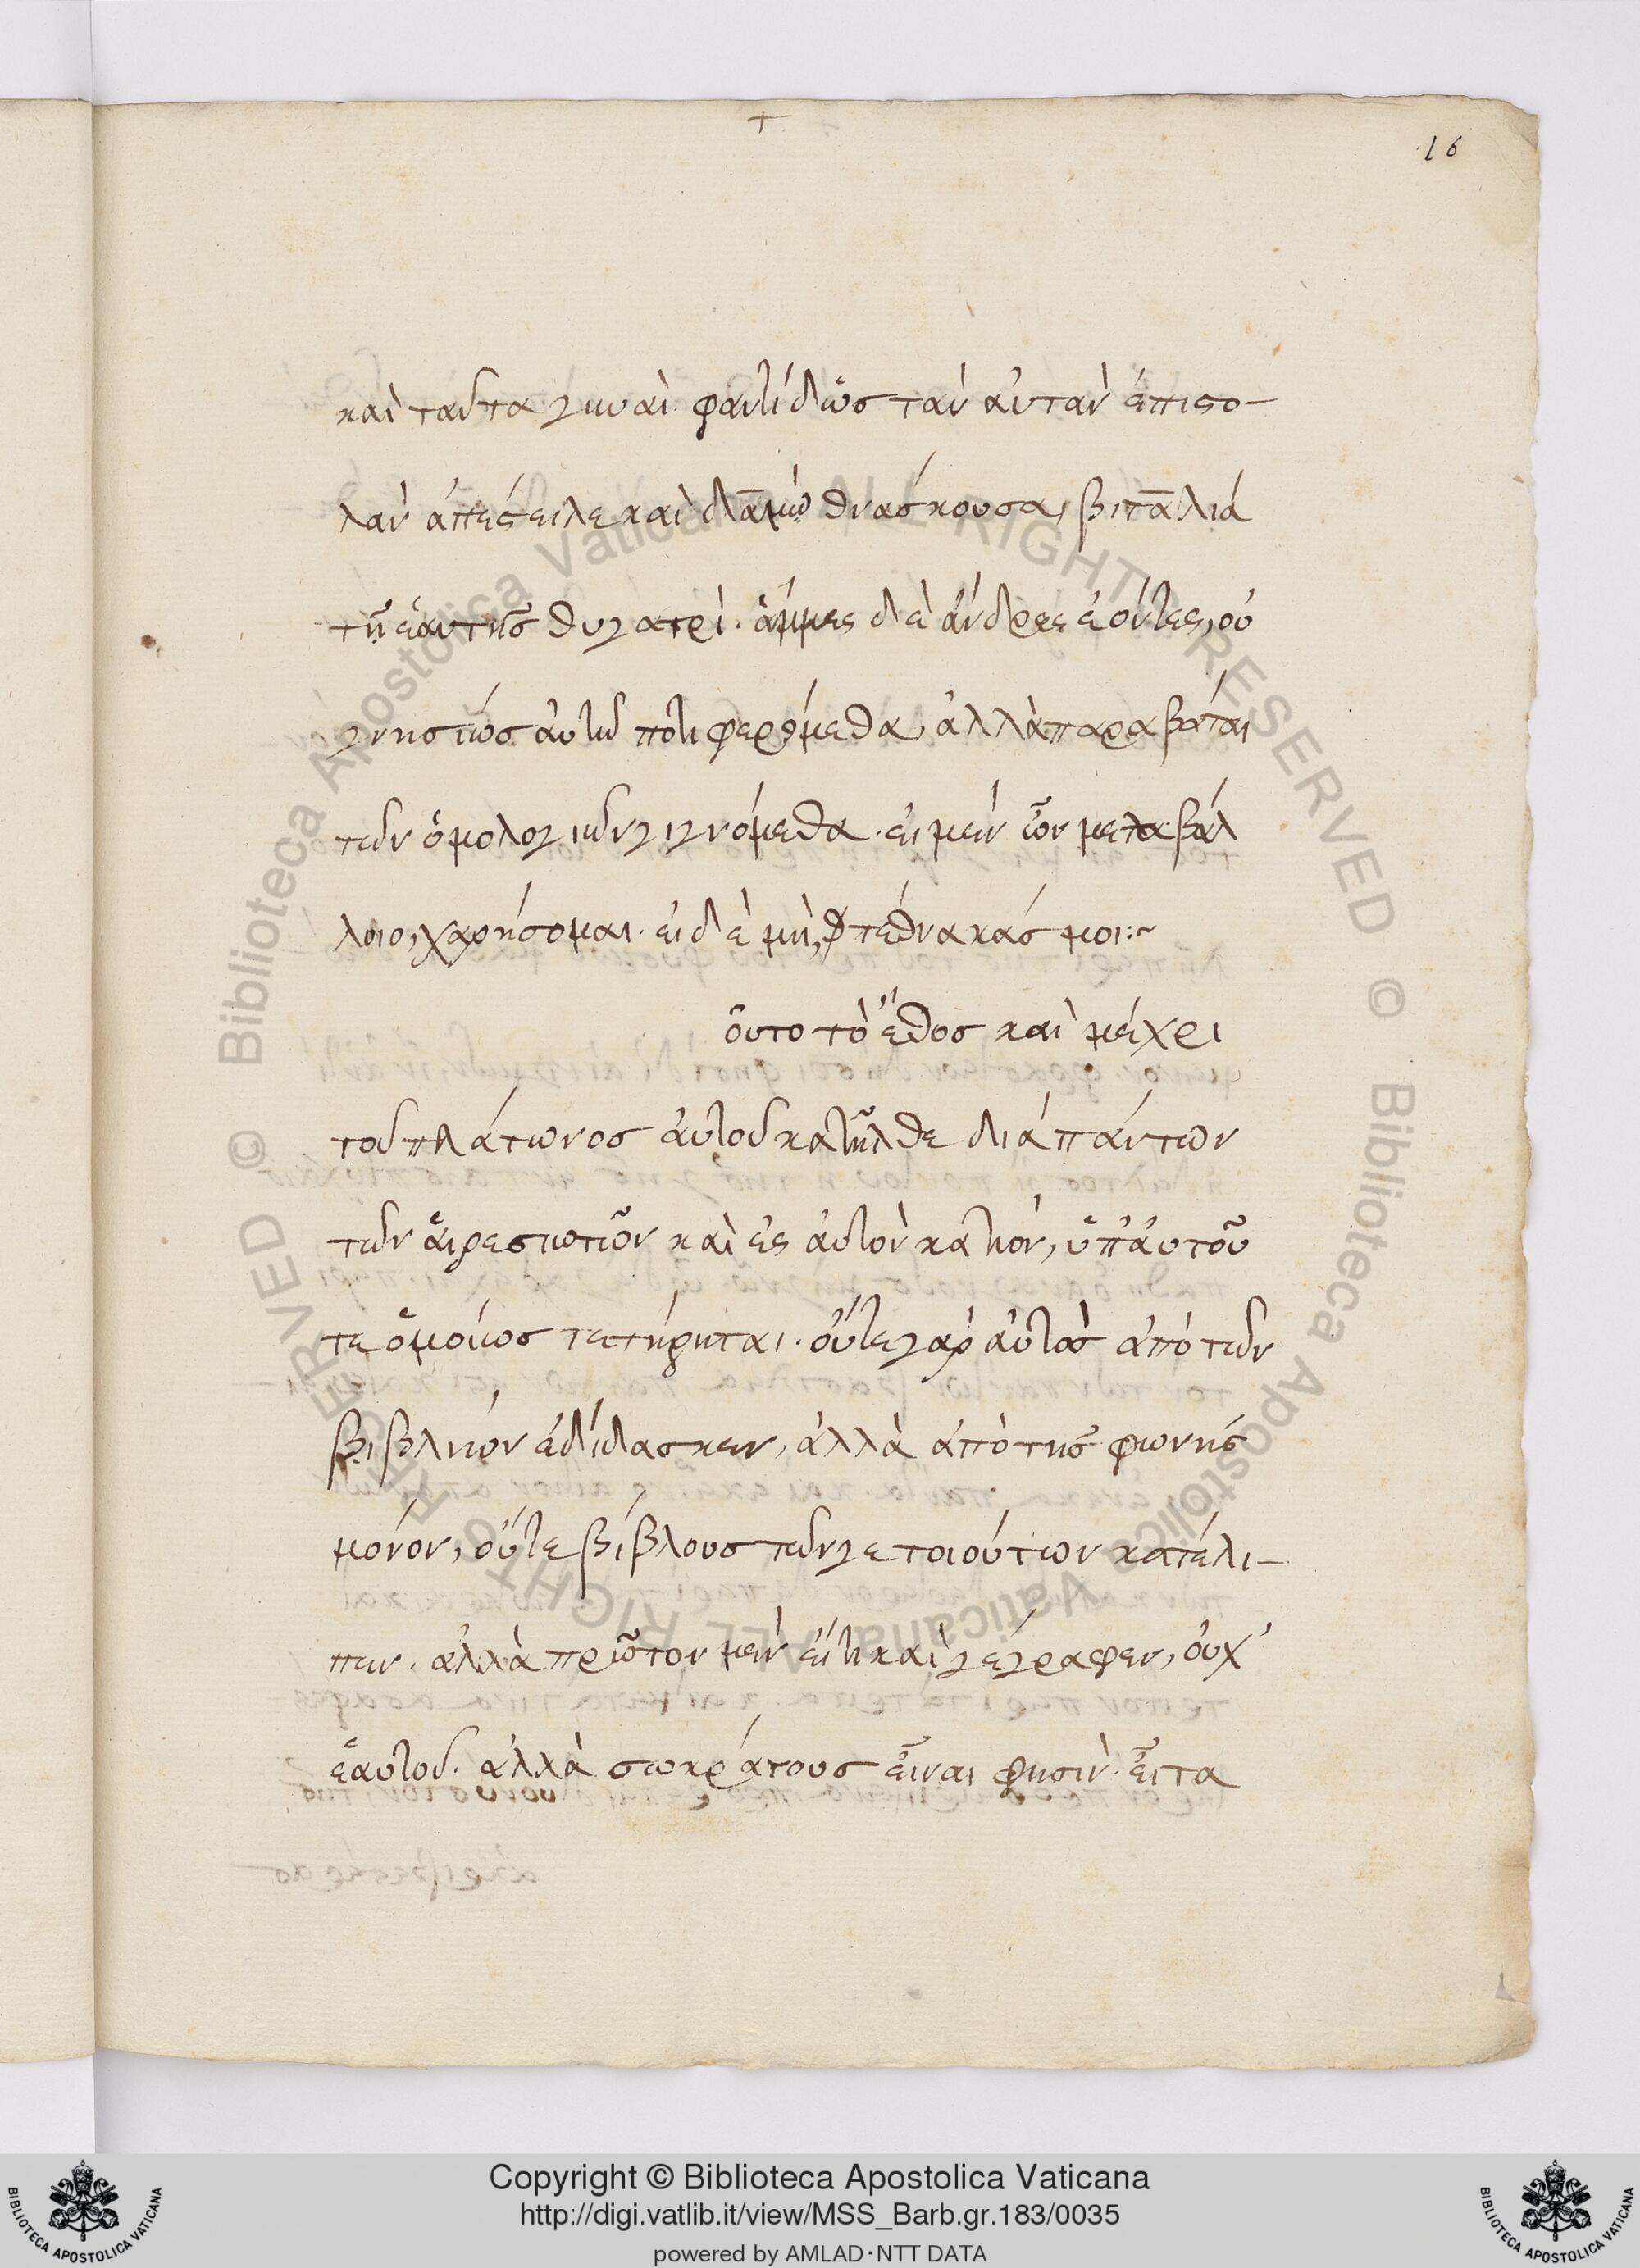 +
16
καὶ ταῦτα γυναὶ. φαντὶ δ' ὡς τὰν αὐτὰν ἐπιστο-
λὰν ἀπέστειλε καὶ δαμὼ θνάσκουσα, βιταλιά
τῆ ἑαυτῆς θυγατρὶ. ἄμμες δὲ ἄνδρες ἐόντες, οὐ
γνησίως αὐτῶ ποτιφερόμεθα, ἀλλὰ παραβάται
τῶν ὁμολογιῶν γιγνόμεθα. εἰ μὲν ὦν μεταβάλ
λοιο, χαρήσομαι. εἰ δὲ μὴ, τέθνακάς μοι:~
οὕτο τὸ ἔθος καὶ μέχρι
τοῦ πλάτωνος αὐτοῦ κατῆλθε διὰ πάντων
τῶν αἱρεσιωτῶν καὶ εἰς αὐτὸν κατιὸν, ὑπ' αὐτοῦ
τε ὁμοίως τετήρηται. οὔτε γὰρ αὐτὸς ἀπὸ τῶν
βιβλίων ἐδίδασκεν, ἀλλὰ ἀπὸ τῆς φωνῆς
μόνον, οὔτε βίβλους τῶν γε τοιούτων κατέλι-
πεν. ἀλλὰ πρῶτον μὲν εἴ τι καὶ γέγραφεν, οὐχ'
ἑαυτοῦ. ἀλλὰ σωκράτους εἶναι φησὶν. εἶτα
Copyright © Biblioteca Apostolica Vaticana
http://digi.vatlib.it/view/MSS_Barb.gr.183/0035
powered by AMLAD·NTT DATA
BIBLIOTECA APOSTOLICA VATICANA
BIBLIOTECA APOSTOLICA VATICANA
© Biblioteca Apostolica Vaticana ALL RIGHTS RESERVED © Biblioteca Apostolica Vaticana ALL RIGHTS RESERVED